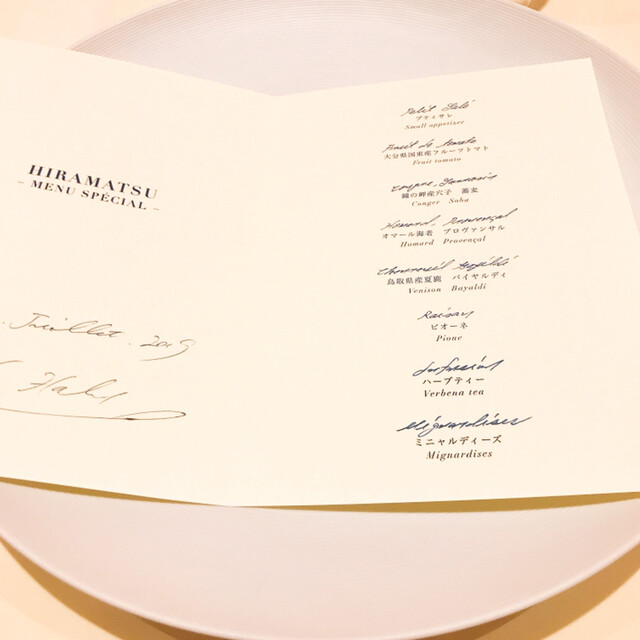 HIRAMATSU
– MENU SPÉCIAL –
Juillet. 2019
Petit Salé
プティサレ
Small appetizer
Fruit de tomate
大分県国東産フルーツトマト
Fruit tomato
岬産穴子 蕎麦
Conger Soba
Homard Provençal
オマール海老 プロヴァンサル
Homard Provençal
鳥取県産夏鹿 バイヤルディ
Venison Bayaldi
Raisin
ピオーネ
Pione
Infusion
ハーブティー
Verbena tea
Mignardises
ミニャルディーズ
Mignardises